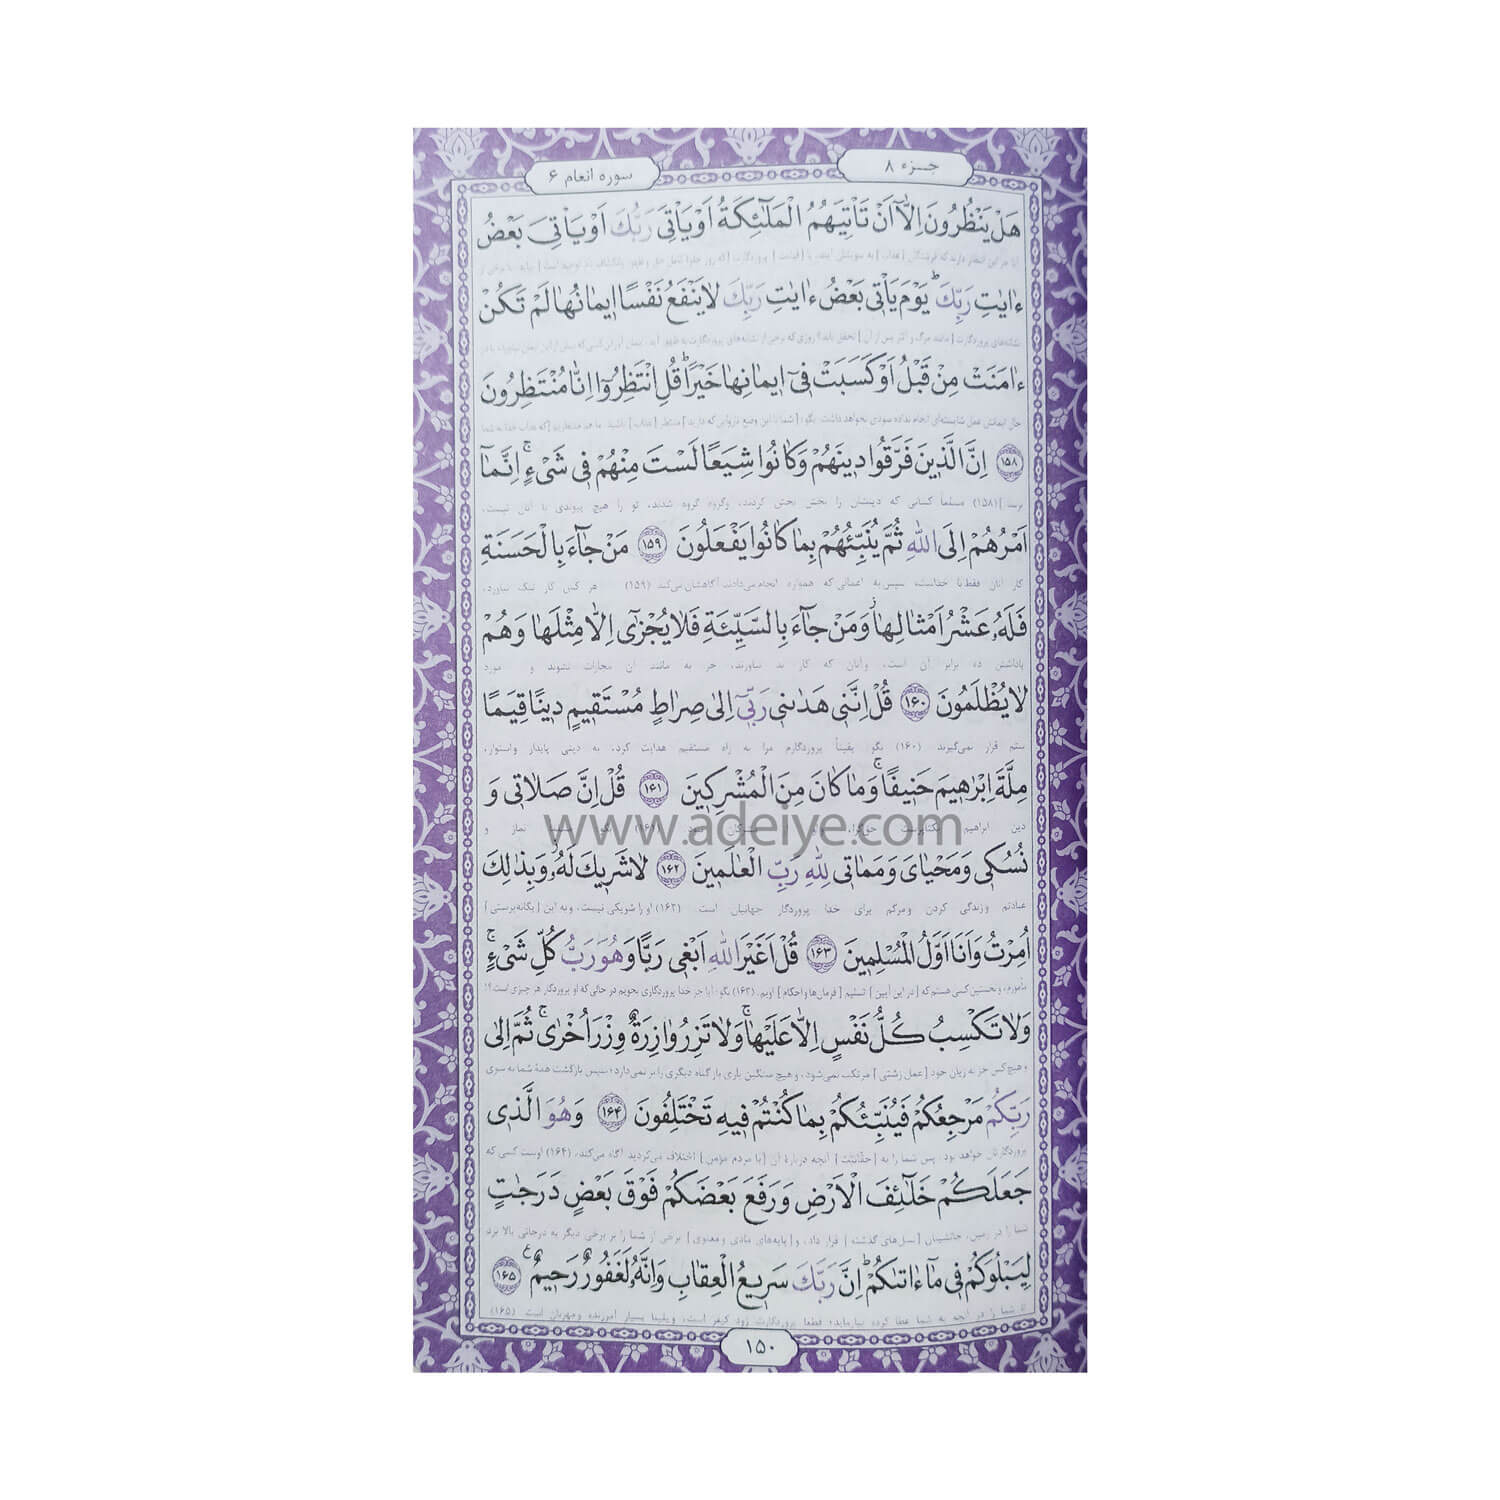 جزء ۸
سوره انعام ۶
هَلْ يَنْظُرُونَ اِلّٰٓا اَنْ تَأْتِيَهُمُ الْمَلٰٓئِكَةُ اَوْ يَأْتِيَ رَبُّكَ اَوْ يَأْتِيَ بَعْضُ
ءٰايٰتِ رَبِّكَ ۗ يَوْمَ يَأْتي بَعْضُ ءٰايٰتِ رَبِّكَ لا يَنْفَعُ نَفْسًا ايمٰانُها لَمْ تَكُنْ
ءٰامَنَتْ مِنْ قَبْلُ اَوْ كَسَبَتْ في ايمٰانِها خَيْرًا ۗ قُلِ انْتَظِرُوٓا اِنّٰا مُنْتَظِرُونَ
۱۵۸ اِنَّ الَّذينَ فَرَّقُوا دينَهُمْ وَكٰانُوا شِيَعًا لَسْتَ مِنْهُمْ في شَيْءٍ ۚ اِنَّمٰآ
اَمْرُهُمْ اِلَى اللّٰهِ ثُمَّ يُنَبِّئُهُمْ بِمٰا كٰانُوا يَفْعَلُونَ ۱۵۹ مَنْ جٰآءَ بِالْحَسَنَةِ
کار آنان فقط با خداست، سپس به اعمالی که همواره انجام می‌دادند، آگاهشان می‌کند (۱۵۹) هر کس کار نیک بیاورد،
فَلَهُ عَشْرُ اَمْثٰالِهٰا ۖ وَمَنْ جٰآءَ بِالسَّيِّئَةِ فَلٰا يُجْزٰىٓ اِلّٰا مِثْلَهٰا وَهُمْ
پاداشش ده برابر آن است، و آنان که کار بد بیاورند، جز به مانند آن مجازات نشوند و مورد
لٰا يُظْلَمُونَ ۱۶۰ قُلْ اِنَّني هَدٰىني رَبّيٓ اِلىٰ صِرٰاطٍ مُسْتَقيمٍ دينًا قِيَمًا
ستم قرار نمی‌گیرند (۱۶۰) بگو: یقیناً پروردگارم مرا به راه مستقیم هدایت کرد، به دینی پایدار و استوار،
مِلَّةَ اِبْرٰهيمَ حَنيفًا ۚ وَمٰا كٰانَ مِنَ الْمُشْرِكينَ ۱۶۱ قُلْ اِنَّ صَلٰاتي وَ
www.adeiye.com
نُسُكي وَمَحْيٰايَ وَمَمٰاتي لِلّٰهِ رَبِّ الْعٰالَمينَ ۱۶۲ لٰا شَريكَ لَهُ ۖ وَبِذٰلِكَ
عبادتم و زندگی کردن و مرگم برای خدا پروردگار جهانیان است (۱۶۲) او را شریکی نیست، و به این [یگانه‌پرستی]
اُمِرْتُ وَاَنَا اَوَّلُ الْمُسْلِمينَ ۱۶۳ قُلْ اَغَيْرَ اللّٰهِ اَبْغي رَبًّا وَهُوَ رَبُّ كُلِّ شَيْءٍ ۚ
مأمورم، و نخستین کسی هستم که [در این آیین] تسلیم [فرمان‌ها و احکام] اویم. (۱۶۳) بگو: آیا جز خدا پروردگاری بجویم در حالی که او پروردگار هر چیزی است؟!
وَلٰا تَكْسِبُ كُلُّ نَفْسٍ اِلّٰا عَلَيْهٰا ۚ وَلٰا تَزِرُ وٰازِرَةٌ وِزْرَ اُخْرٰى ۚ ثُمَّ اِلىٰ
و هیچ کس جز به زیان خود [عمل زشتی] مرتکب نمی‌شود، و هیچ سنگین باری بار گناه دیگری را بر نمی‌دارد؛ سپس بازگشت همهٔ شما به سوی
رَبِّكُمْ مَرْجِعُكُمْ فَيُنَبِّئُكُمْ بِمٰا كُنْتُمْ فيهِ تَخْتَلِفُونَ ۱۶۴ وَهُوَ الَّذي
پروردگارتان خواهد بود، پس شما را به [حقّانیّت] آنچه دربارهٔ آن [با مردم مؤمن] اختلاف می‌کردید آگاه می‌کند. (۱۶۴) اوست کسی که
جَعَلَكُمْ خَلٰٓئِفَ الْاَرْضِ وَرَفَعَ بَعْضَكُمْ فَوْقَ بَعْضٍ دَرَجٰتٍ
شما را در زمین، جانشینان [نسل‌های گذشته] قرار داد، و [پایه‌های مادی و معنوی] برخی از شما را بر برخی دیگر به درجاتی بالا برد
لِيَبْلُوَكُمْ في مٰٓا ءٰاتىٰكُمْ ۗ اِنَّ رَبَّكَ سَريعُ الْعِقٰابِ وَاِنَّهُ لَغَفُورٌ رَحيمٌ ۱۶۵
تا شما را در آنچه به شما عطا کرده بیازماید؛ قطعاً پروردگارت زود کیفر است، و یقیناً بسیار آمرزنده و مهربان است. (۱۶۵)
۱۵۰